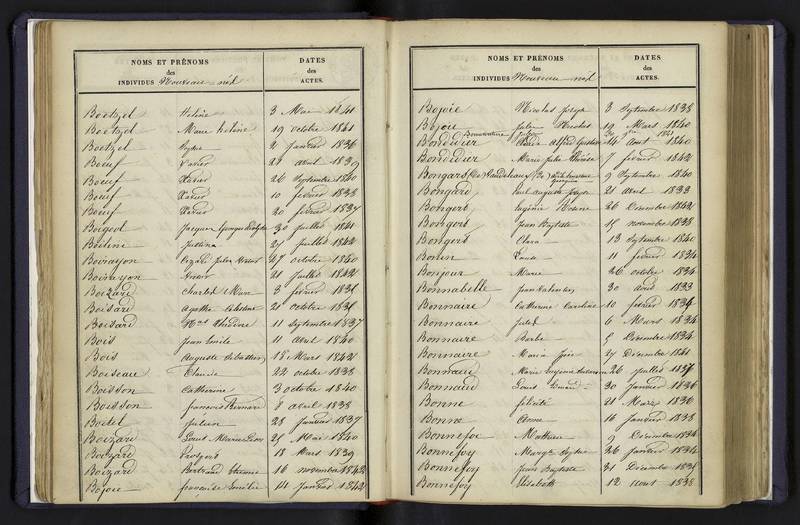 NOMS ET PRÉNOMS des INDIVIDUS Nouveau né DATES des ACTES.
Boetzel Helène 3 Mai 1841
Boetzel Marie Helène 19 octobre 1841
Boetzel Sophie 2 janvier 1836
Boeuf Xavier 27 avril 1839
Boeuf Xavier 26 Septembre 1840
Boeuf Xavier 10 février 1838
Boeuf Xavier 20 février 1837
Boigeol Jacques Georges 30 juillet 1841
Justina 27 juillet 1842
Jules 27 octobre 1840
21 juillet 1842
Boizard Charles Marie 3 février
Boisard Agathe Celestine 21 octobre
Boisard 11 Septembre 1837
Bois Jean Emile 11 avril 1840
Bois Auguste Sebastien 18 Mars 1842
Boiseau Claude 22 octobre 1838
Boisson Catherine 3 octobre 1840
Boisson françois Bernard 8 avril 1838
Julien 28 janvier 1837
Boizard Louis Marie 25 Mai 1840
Boizard 18 Mars 1839
Boizard Bertrand Etienne 16 novembre 1842
Bojou françoise Emélie 14 Janvier 1842
NOMS ET PRÉNOMS des INDIVIDUS Nouveau né DATES des ACTES.
Nicolas Joseph 3 Septembre 1838
Bojou Jules Nicolas 19 Mars 1840
Bondidier Marie Alfred Gustave 14 aout 1840
Bondidier Marie Julie Thérèse 7 février 1842
Bongard 9 Septembre 1840
Bongard Paul auguste Joseph 21 avril 1833
Bongert Eugénie Rosine 26 Décembre 1842
Bongert Jean Baptiste 15 novembre 1838
Bongert Clara 13 Septembre 1840
Bonin 11 février 1834
Bonjour Marie 26 octobre 1834
Bonnabelle Jean 30 avril 1833
Bonnaire Catherine Caroline 10 février 1834
Bonnaire Jules 6 Mars 1834
Bonnaire Barbe 5 Décembre 1834
Bonnaire Maria 27 Décembre 1841
Bonnaud Marie Eugénie 26 juillet 1837
Bonnaud Louis 30 Janvier 1836
Bonne félicité 21 Mars 1836
Bonne Anne 16 Janvier 1838
Bonnefoi Mathieu 9 Décembre 1834
Bonnefoy Sophie 26 Janvier 1834
Bonnefoy Jean Baptiste 31 Décembre
Bonnefoy Elisabeth 12 Aout 1838